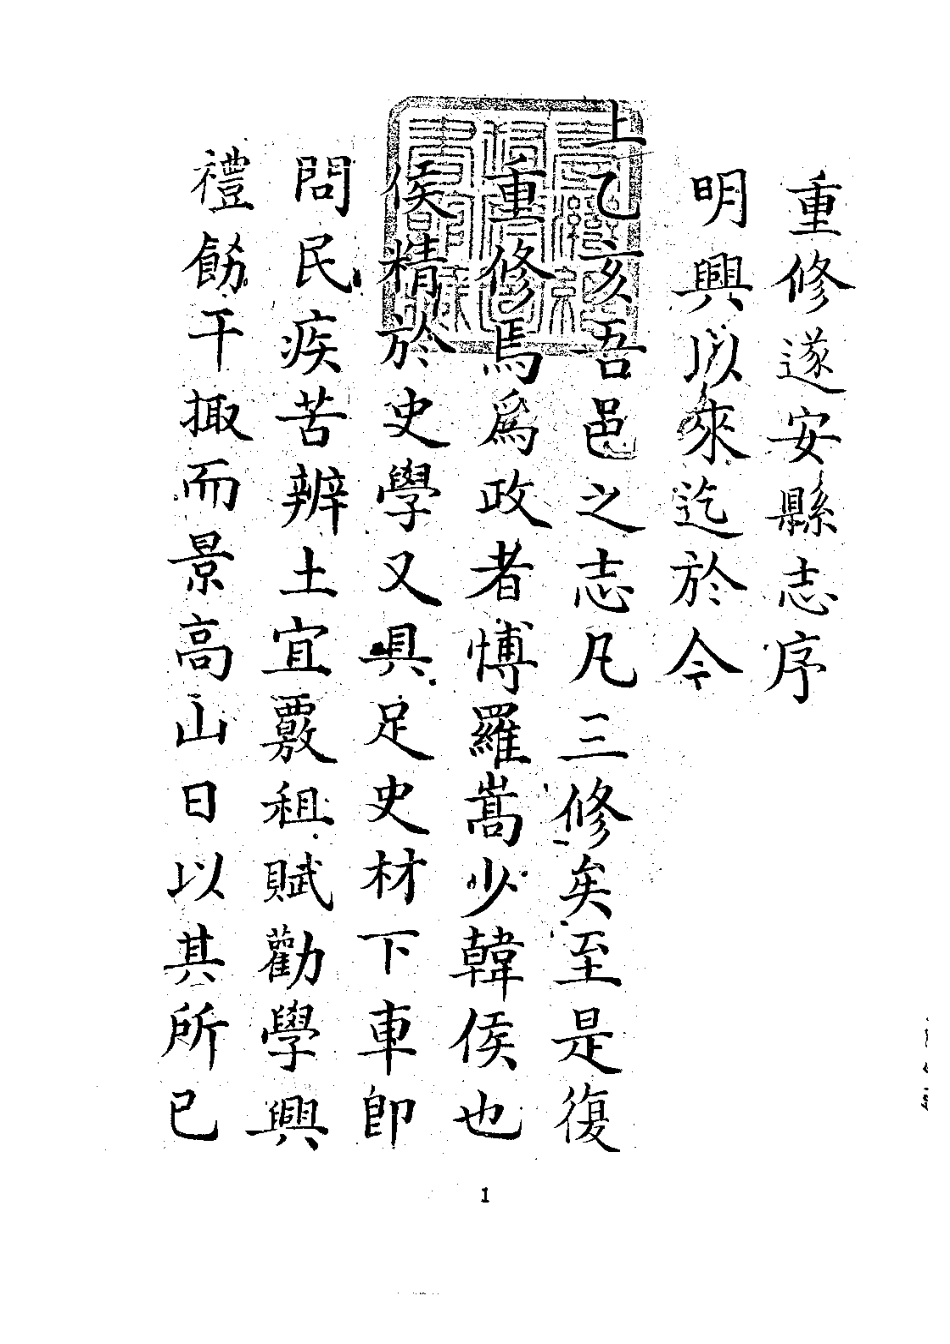 重修遂安縣志序
明興以來迄於今
上乙亥吾邑之志凡三修矣至是復
重修焉爲政者博羅嵩少韓侯也
侯精於史學又具足史材下車即
問民疾苦辨土宜覈租賦勸學興
禮餙干掫而景高山日以其所已
1